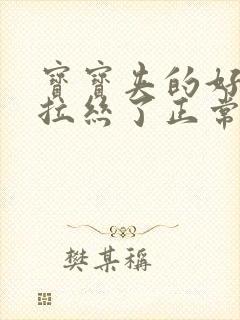 寶寶夹的好
拉絲了正常
樊某稱